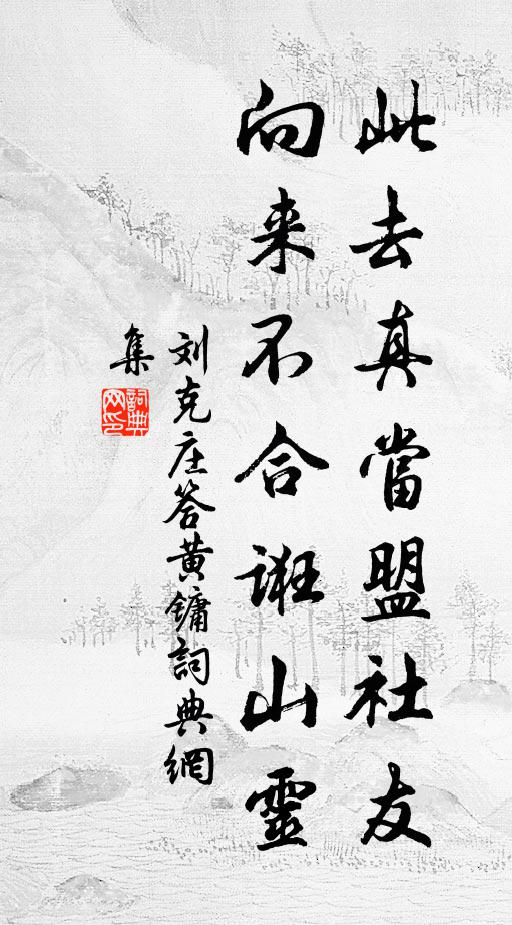 此去真當盟社友
向来不合诳山靈
刘克庄答黄镛詞典網
集
詞典网印